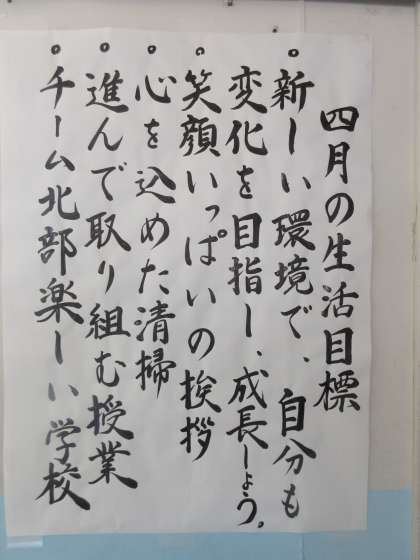 四月の生活目標
。新しい環境で、自分も
変化を目指し、成長しよう。
。笑顔いっぱいの挨拶
。心を込めた清掃
。進んで取り組む授業
。チーム北部楽しい学校